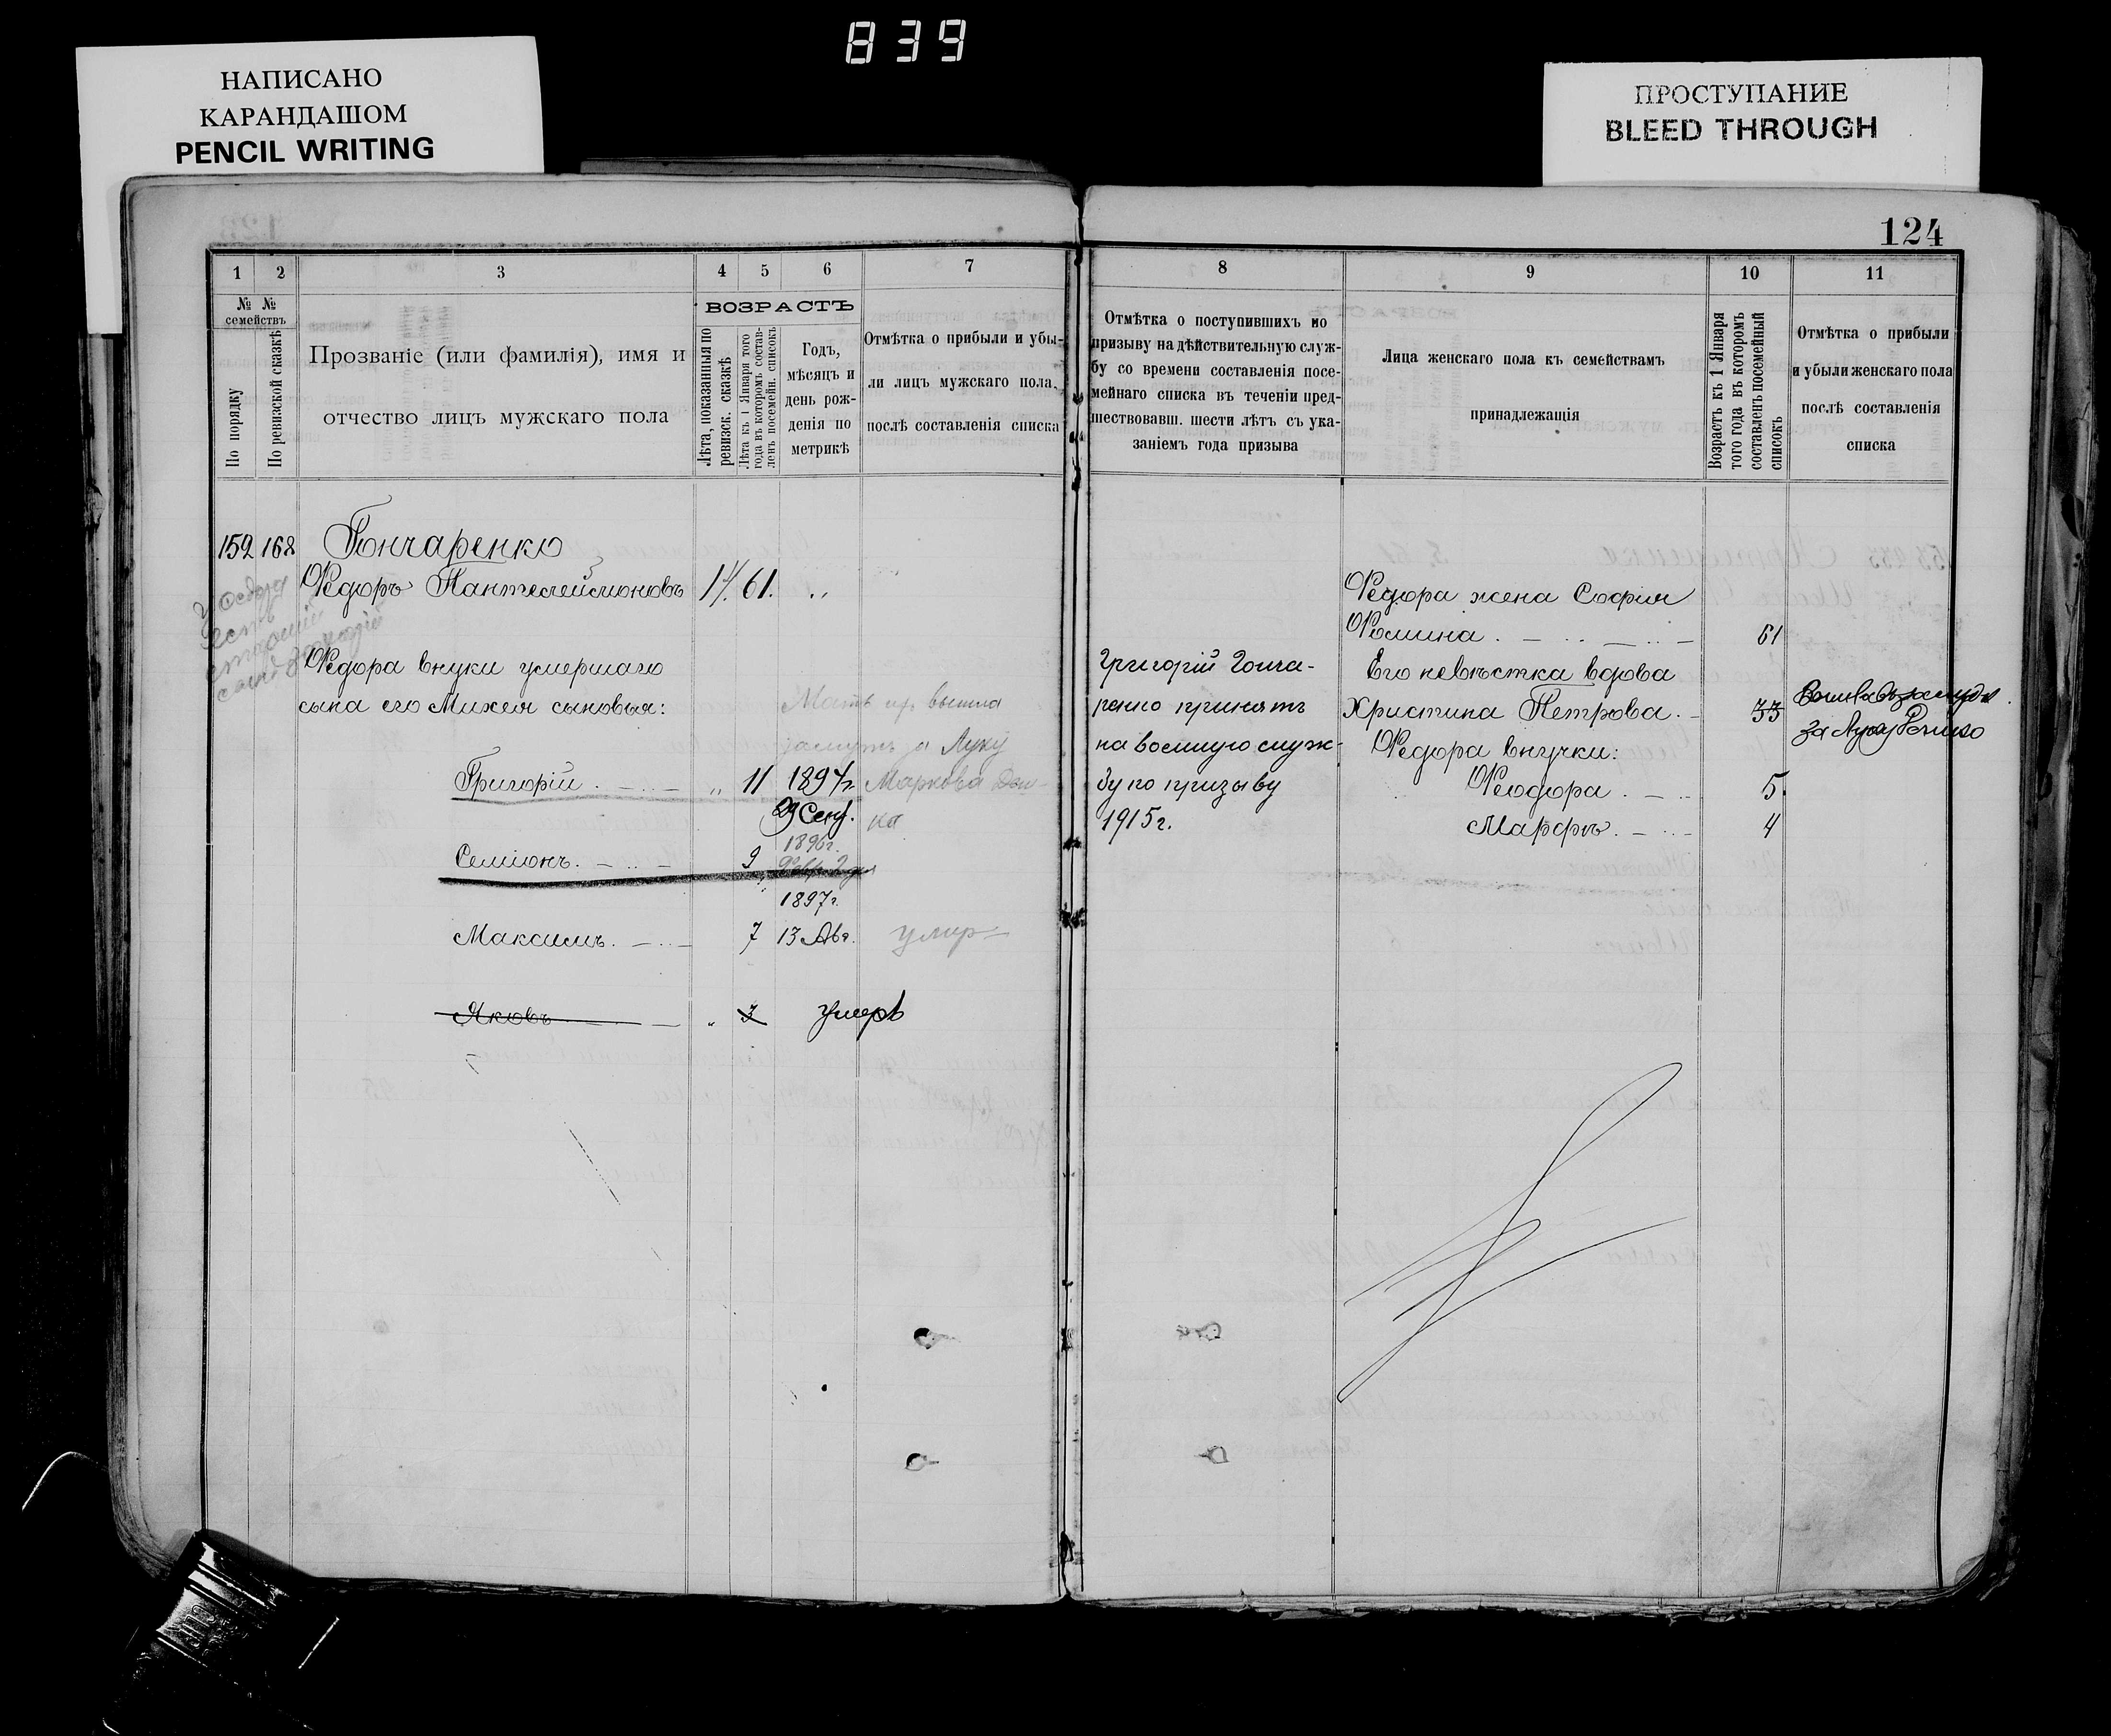 839
НАПИСАНО
КАРАНДАШОМ
PENCIL WRITING
ПРОСТУПАНИЕ
BLEED THROUGH
124
1 2 3 4 5 6 7
№ № семействъ
По порядку
По ревизской сказкѣ
Прозваніе (или фамилія), имя и
отчество лицъ мужскаго пола
ВОЗРАСТЪ
Лѣта, показанныя по
ревизск. сказкѣ
Лѣта къ 1 Января того
года въ которомъ состав-
ленъ посемейн. списокъ
Годъ,
мѣсяцъ и
день рож-
денія по
метрикѣ
Отмѣтка о прибыли и убы-
ли лицъ мужскаго пола,
послѣ составленія списка
8 9 10 11
Отмѣтка о поступившихъ по
призыву на дѣйствительную служ-
бу со времени составленія посе-
мейнаго списка въ теченіи пред-
шествовавш. шести лѣтъ съ ука-
заніемъ года призыва
Лица женскаго пола къ семействамъ
принадлежащія
Возрастъ къ 1 Января
того года въ которомъ
составленъ посемейный
списокъ
Отмѣтка о прибыли
и убыли женскаго пола
послѣ составленія
списка
159 168 Гончаренко
Федоръ Пантелеймоновъ 14. 61.
у Федора
есть
сынъ
Федора внуки умершаго
сына его Михея сыновья:
Григорій 11 1894г.
29 Сент.
Семіонъ. 9 1896г.
1897г.
Максимъ. 7 13 Авг. умеръ
Яковъ 3 умеръ
Мать их вышла
замужъ за Луку
Маркова
Григорій Гонча-
ренко принятъ
на военную служ-
бу по призыву
1915г.
Федора жена Софія
Фомина. 61
Его невѣстка вдова
Христина Петрова. 33
Федора внучки:
Феодора. 5.
Марфа. 4
Вышла замужъ
за Луку